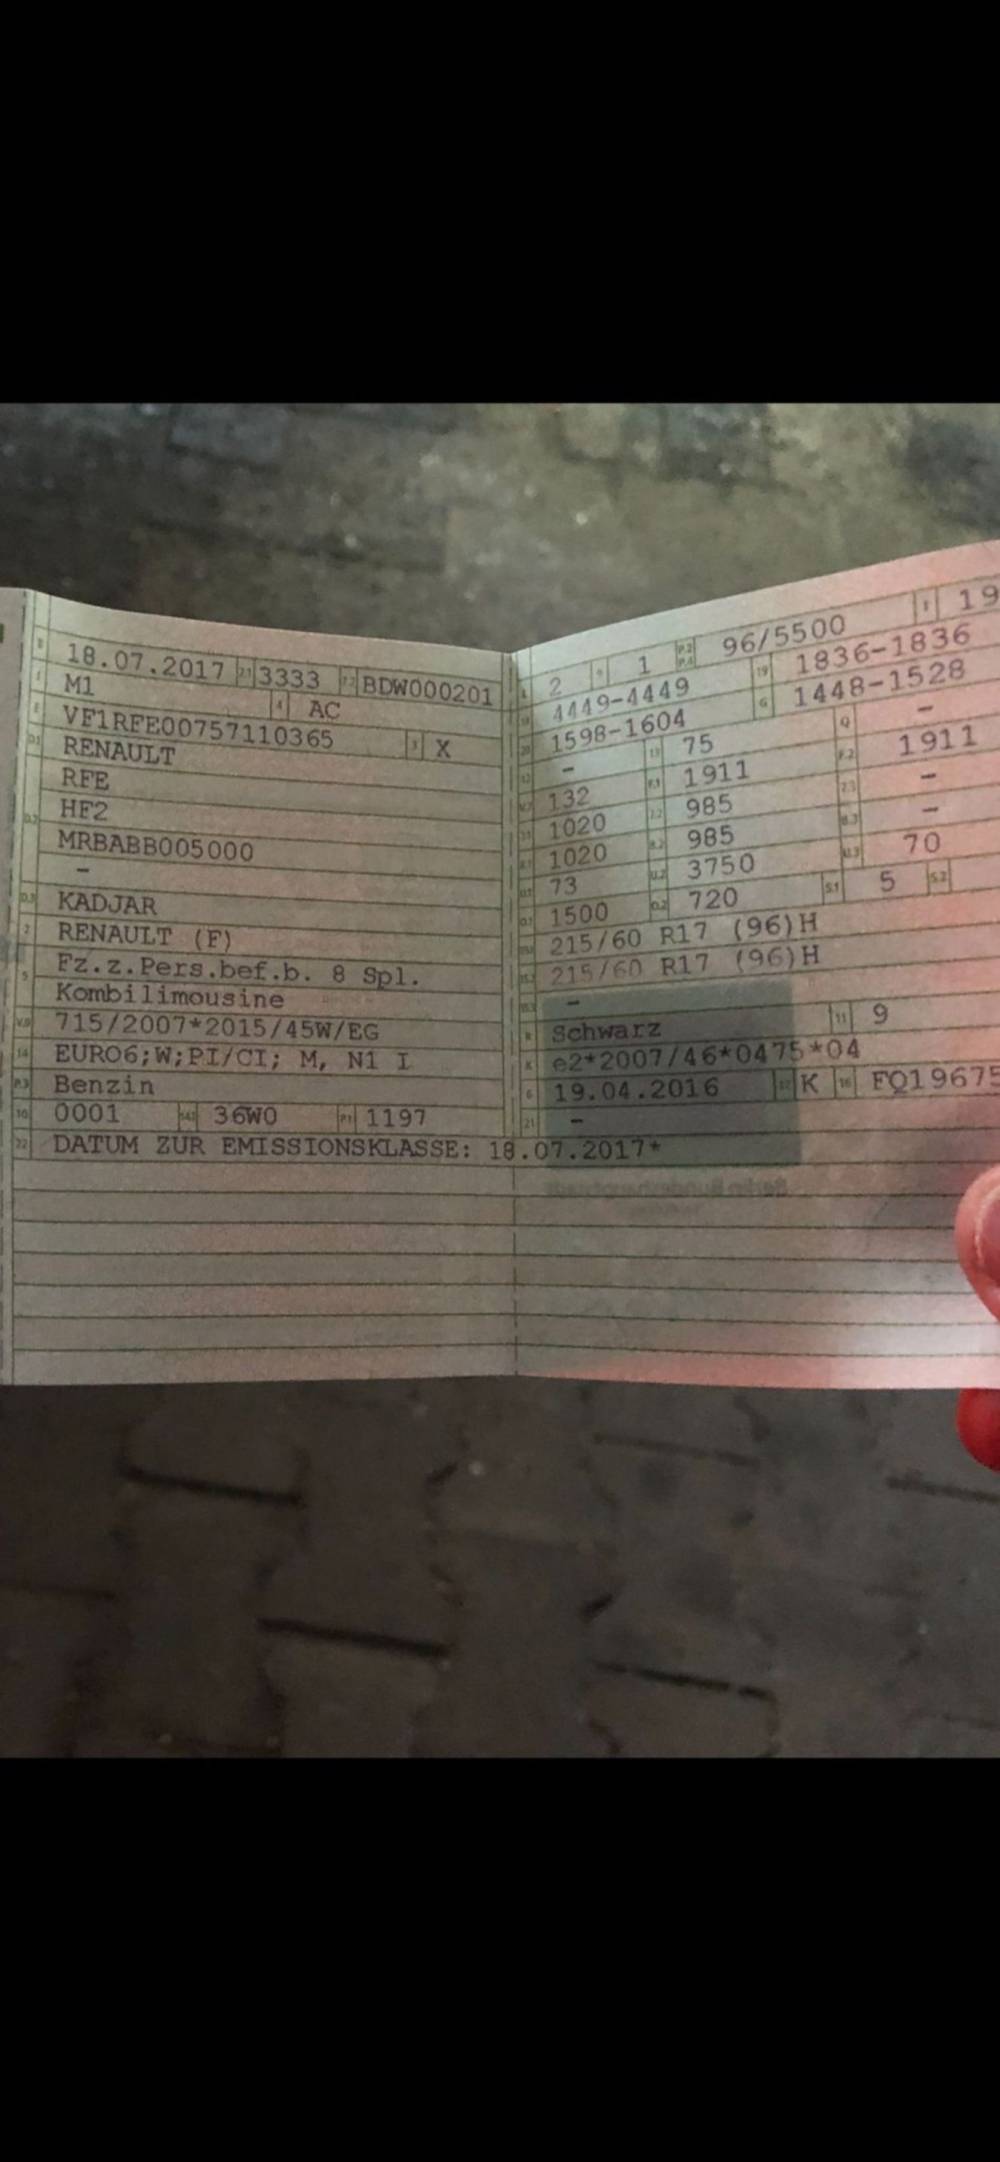 18.07.2017 2.1 3333 2.2 BDW000201
M1 4 AC
VF1RFE00757110365 3 X
RENAULT
RFE
HF2
MRBABB005000
–
KADJAR
RENAULT (F)
Fz.z.Pers.bef.b. 8 Spl.
Kombilimousine
715/2007*2015/45W/EG
EURO6;W;PI/CI; M, N1 I
Benzin
0001 36W0 P.1 1197
22 DATUM ZUR EMISSIONSKLASSE: 18.07.2017*
2 9 1 P.2 P.4 96/5500 19
4449-4449 19 1836-1836
1598-1604 G 1448-1528
– 13 75 Q –
132 F.1 1911 F.2 1911
1020 7.2 985 7.3 –
1020 8.2 985 8.3 –
73 U.2 3750 U.3 70
1500 O.2 720 S.1 5 S.2
215/60 R17 (96)H
215/60 R17 (96)H
–
R Schwarz 11 9
K e2*2007/46*0475*04
6 19.04.2016 17 K 16 FQ19675
21 –